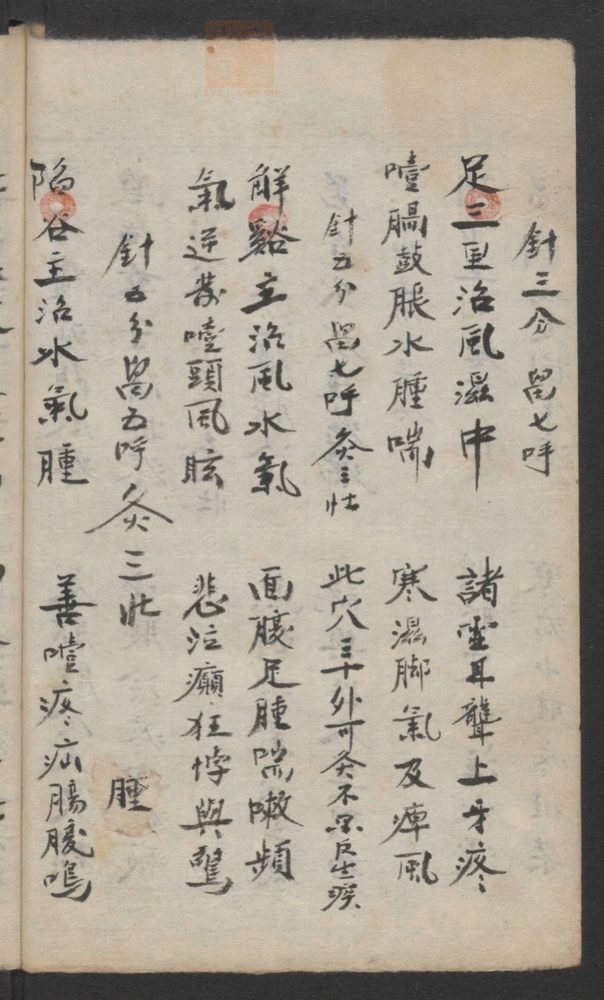 針三分畄七呼
足三里治風濕中　諸虛耳聾上牙疼
噎膈鼓脹水腫喘　寒濕脚氣及痺風
針五分畄七呼灸三壯　此穴三十外可灸不尔反生疾
解谿主治風水氣　面腹足腫喘嗽頻
氣逆發噎頭風眩　悲泣癲狂悸與驚
針五分畄五呼灸三壯　腫
陷谷主治水氣腫　善噫疼疝腸腹鳴